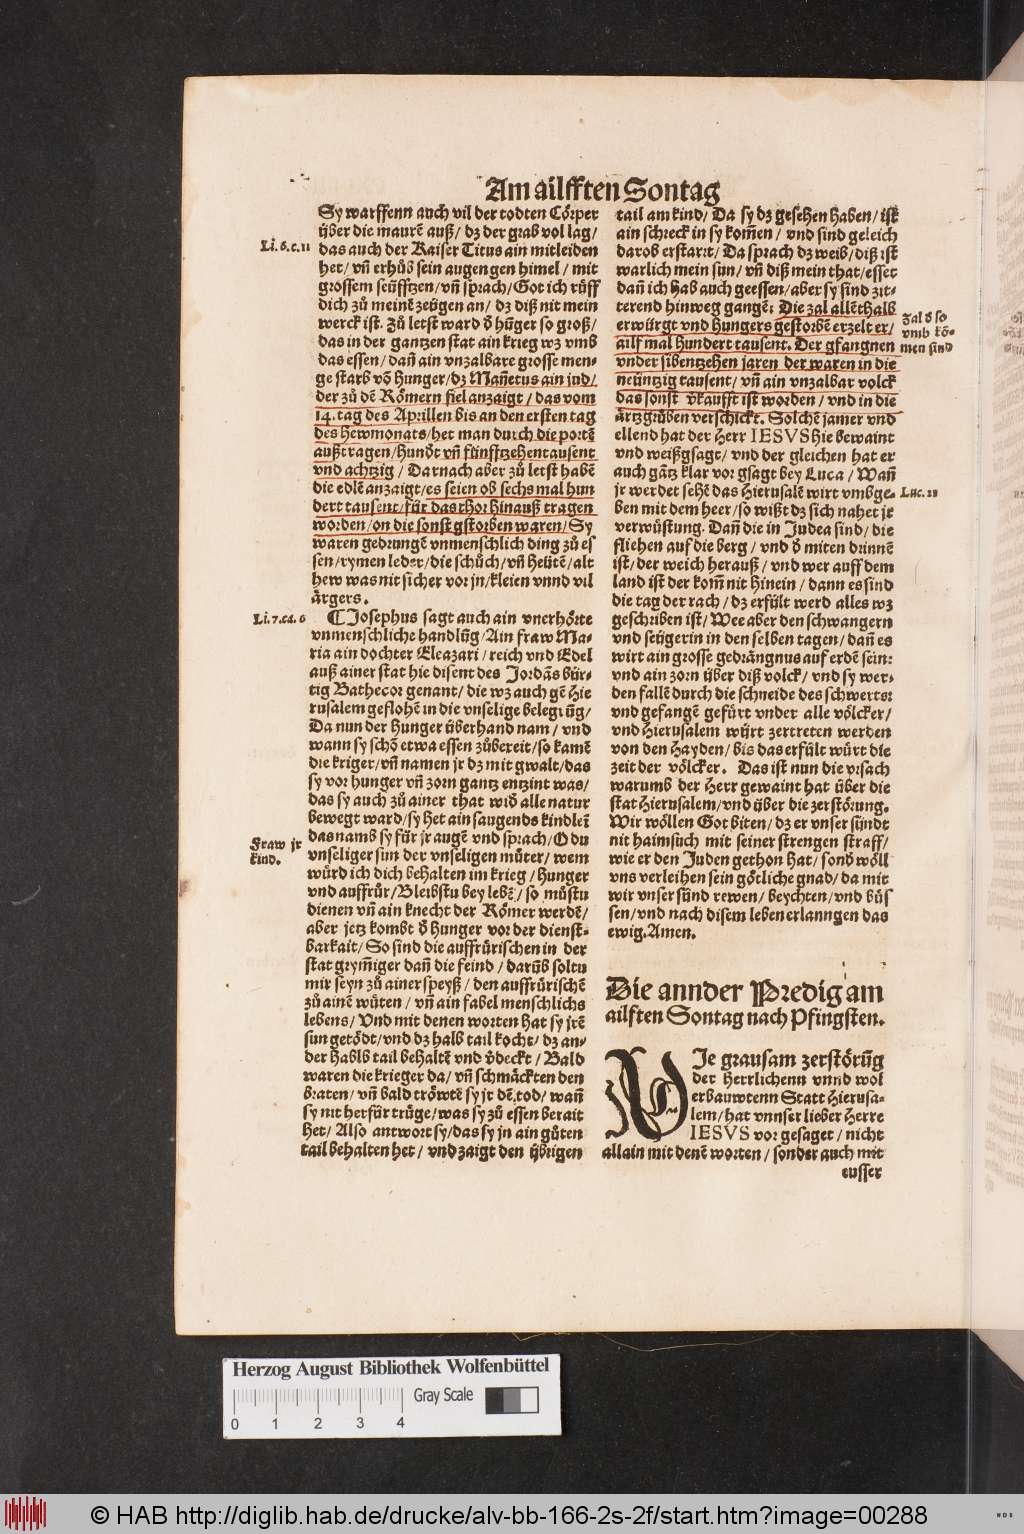 Am ailfften Sontag
Sy warffenn auch vil der todten Cörper
über die maurē auß/ dz der grab vol lag/
Li. 6. c. 11
das auch der Kaiser Titus ain mitleiden
het/ vn̄ erhůb sein augen gen himel/ mit
grossem seüfftzen/ vn̄ sprach/ Got ich rüff
dich zů meinē zeügen an/ dz diß nit mein
werck ist. Zů letst ward d̕ hūger so groß/
das in der gantzen stat ain krieg wz vmb
das essen/ dan̄ ain vnzalbare grosse men-
ge starb vō hunger/ dz Man̄etus ain jud/
der zů dē Römern fiel anzaigt/ das vom
14. tag des Aprillen bis an den ersten tag
des Hewmonats/ het man durch die portē
außtragen/ hund̕t vn̄ fünfftzehentausent
vnd achtzig/ Darnach aber zů letst habē
die edlē anzaigt/ es seien ob sechs mal hun
dert tausent/ für das thor hinauß tragen
worden/ on die sonst gstorben waren/ Sy
waren gedrungē vnmenschlich ding zů es
sen/ rymen leder/ die schůch/ vn̄ heütē/ alt
hew was nit sicher vor jn/ kleien vnnd vil
ärgers.
Li. 7. ca. 6
¶ Josephus sagt auch ain vnerhörte
vnmenschliche handlūg/ Ain fraw Ma-
ria ain dochter Eleazari/ reich vnd Edel
auß ainer stat hie disent des Jordās bür-
tig Bathecor genant/ die wz auch gē Hie
rusalem geflohē in die vnselige belegrūg/
Da nun der Hunger überhand nam/ vnd
wann sy schō etwa essen zůbereit/ so kamē
die kriger/ vn̄ namen jr dz mit gwalt/ das
sy vor hunger vn̄ zorn gantz entzint was/
das sy auch zů ainer that wid̕ alle natur
bewegt ward/ sy het ain saugends kindleī
Fraw jr
kind.
das namb sy für jr augē vnd sprach/ O du
vnseliger sun der vnseligen můter/ wem
würd ich dich behalten im krieg/ Hunger
vnd auffrür/ Bleibstu bey lebē/ so můstu
dienen vn̄ ain knecht der Römer werdē/
aber jetz kombt d̕ hunger vor der dienst-
barkait/ So sind die auffrürischen in der
stat grym̄iger dan̄ die feind/ darūb soltu
mir seyn zů ainer speyß/ den auffrürischē
zů ainē wüten/ vn̄ ain fabel menschlichs
lebens/ Vnd mit denen worten hat sy jrē
sun getödt/ vnd dz halb tail kocht/ dz an-
der hablb tail behaltē vnd v̕deckt/ Bald
waren die krieger da/ vn̄ schmäckten den
braten/ vn̄ bald tröwtē sy jr dē tod/ wan̄
sy nit herfür trüge/ was sy zů essen berait
het/ Also antwort sy/ das sy jn ain gůten
tail behalten het/ vnd zaigt den übrigen
tail am kind/ Da sy dz gesehen haben/ ist
ain schreck in sy kom̄en/ vnd sind geleich
darob erstarrt/ Da sprach dz weib/ diß ist
warlich mein sun/ vn̄ diß mein that/ esset
dan̄ ich hab auch geessen/ aber sy sind zit-
terend hinweg gangē: Die zal allēthalb
Zal d̕ so
vmb kō-
men sind
erwürgt vnd hungers gestorbē erzelt er/
ailf mal hundert tausent. Der gfangnen
vnder sibentzehen jaren der waren in die
neüntzig tausent/ vn̄ ain vnzalbar volck
das sonst v̕kaufft ist worden/ vnd in die
ärtzgrůben verschickt. Solchē jamer vnd
ellend hat der Herr IESVS hie bewaint
vnd weißgsagt/ vnd der gleichen hat er
auch gātz klar vor gsagt bey Luca/ Wan̄
jr werdet sehē das Hierusalē wirt vmbge-
Luc. 21
ben mit dem heer/ so wißt dz sich nahet jr
verwüstung. Dan̄ die in Judea sind/ die
fliehen auf die berg/ vnd d̕ miten drinnē
ist/ der weich herauß/ vnd wer auff dem
land ist der kom̄ nit hinein/ dann es sind
die tag der rach/ dz erfült werd alles wz
geschriben ist/ Wee aber den schwangern
vnd seügerin in den selben tagen/ dan̄ es
wirt ain grosse gedrängnus auf erdē sein:
vnd ain zorn über diß volck/ vnd sy wer-
den fallē durch die schneide des schwerts:
vnd gefangē gefürt vnder alle völcker/
vnd Hierusalem würt zertreten werden
von den Hayden/ bis das erfült würt die
zeit der völcker. Das ist nun die vrsach
warumb der Herr gewaint hat über die
stat Hierusalem/ vnd über die zerstörung.
Wir wöllen Got biten/ dz er vnser sündt
nit haimsuch mit seiner strengen straff/
wie er den Juden gethon hat/ sond̕ wöll
vns verleihen sein götliche gnad/ da mit
wir vnser sünd rewen/ beychten/ vnd büs
sen/ vnd nach disem leben erlanngen das
ewig. Amen.
Die annder Predig am
ailften Sontag nach Pfingsten.
WJe grausam zerstörūg
der Herrlichenn vnnd wol
erbauwtenn Statt Hierusa-
lem/ hat vnnser lieber Herre
IESVS vor gesaget/ nicht
allain mit denē worten/ sonder auch mit
eusser
Herzog August Bibliothek Wolfenbüttel
Gray Scale
0 1 2 3 4
© HAB http://diglib.hab.de/drucke/alv-bb-166-2s-2f/start.htm?image=00288